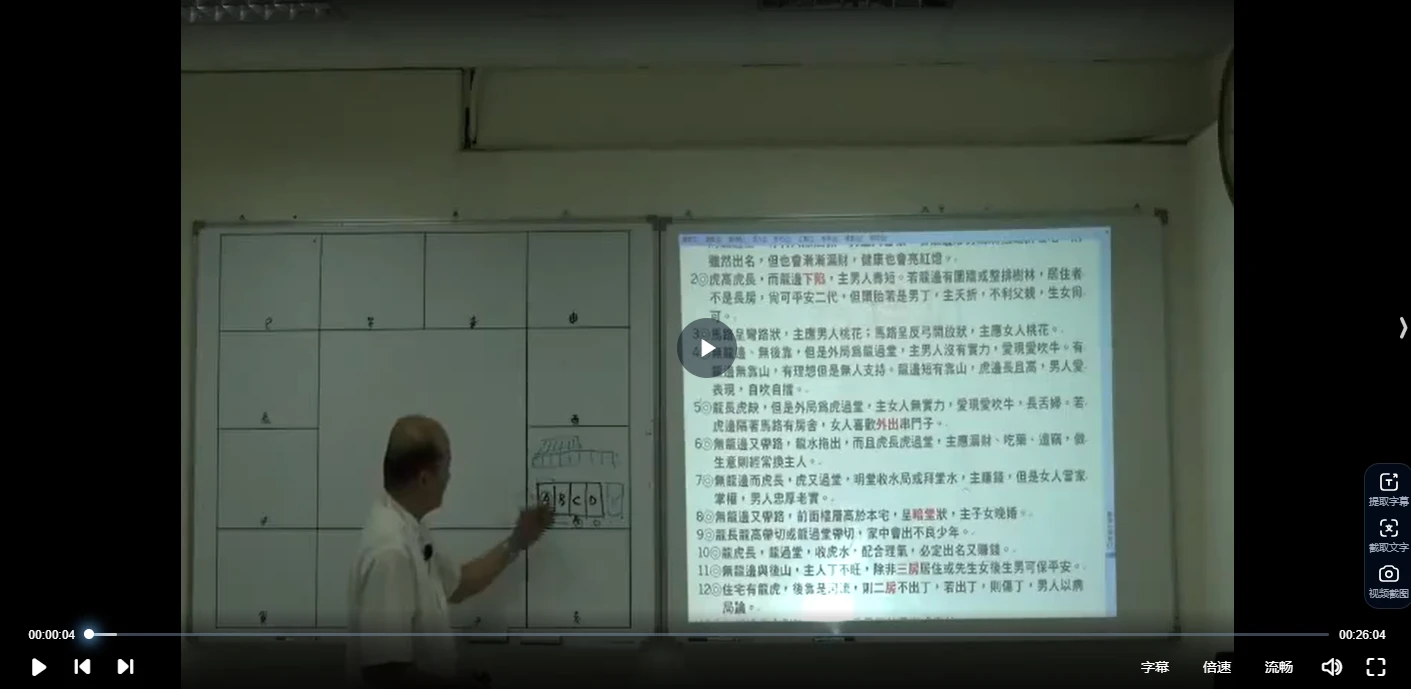 雖然出名，但也會漸漸漏財，健康也會亮紅燈。
2◎虎高虎長，而龍邊下陷，主男人壽短。若龍邊有圍牆或整排樹林，居住者
不是長房，尚可平安二代，但頭胎若是男丁，主夭折，不利父親，生女尚
可。
3◎馬路呈彎路狀，主應男人桃花；馬路呈反弓開岔狀，主應女人桃花。
4◎無龍邊、無後靠，但是外局為龍過堂，主男人沒有實力，愛現愛吹牛。有
龍邊無靠山，有理想但是無人支持。龍邊短有靠山，虎邊長且高，男人愛
表現，自吹自擂。
5◎龍長虎缺，但是外局為虎過堂，主女人無實力，愛現愛吹牛，長舌婦。若
虎邊隔著馬路有房舍，女人喜歡外出串門子。
6◎無龍邊又帶路，龍水拖出，而且虎長虎過堂，主應漏財、吃藥、遭竊，做
生意則經常換主人。
7◎無龍邊而虎長，虎又過堂，明堂收水局或拜堂水，主賺錢，但是女人當家
掌權，男人忠厚老實。
8◎無龍邊又帶路，前面樓層高於本宅，呈暗堂狀，主子女晚婚。
9◎龍長龍高帶切或龍過堂帶切，家中會出不良少年。
10◎龍虎長，龍過堂，收虎水，配合理氣，必定出名又賺錢。
11◎無龍邊與後山，主人丁不旺，除非三房居住或先生女後生男可保平安。
12◎住宅有龍虎，後靠是河流，則二房不出丁，若出丁，則傷丁，男人以病
局論。
A B C D
00:00:04
00:26:04
字幕
倍速
流畅
提取字幕
截取文字
视频截图